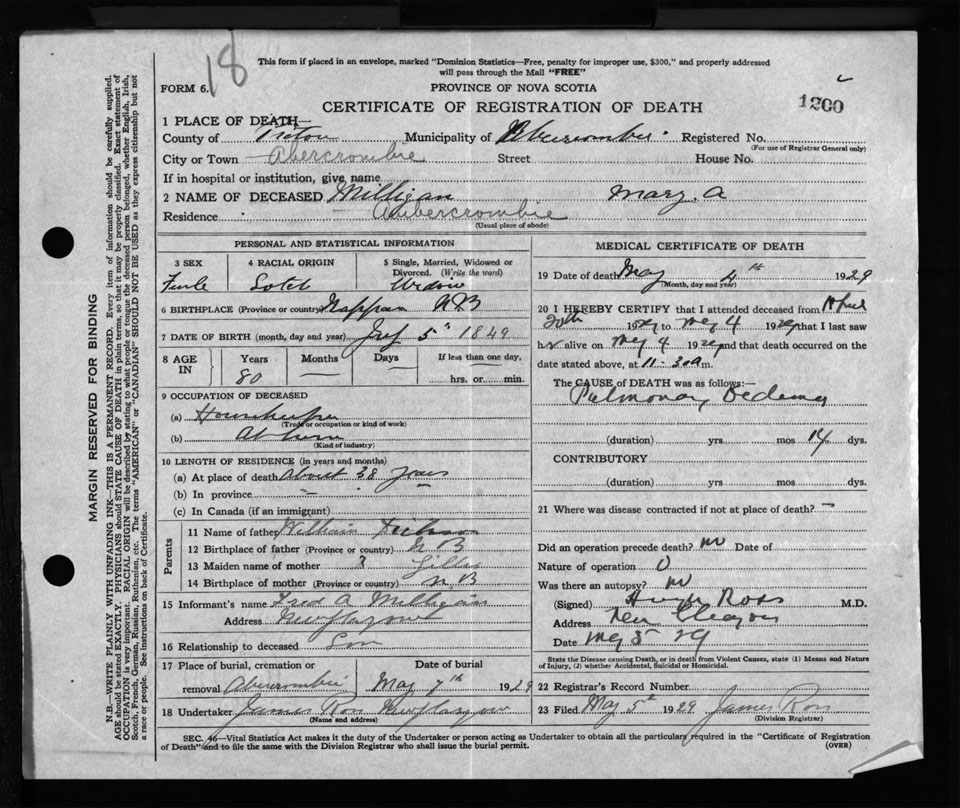 18
This form if placed in an envelope, marked "Dominion Statistics—Free, penalty for improper use, $300," and properly addressed
will pass through the Mail "FREE"
FORM 6.
PROVINCE OF NOVA SCOTIA
1200
CERTIFICATE OF REGISTRATION OF DEATH
1 PLACE OF DEATH—
County of Pictou Municipality of Abercrombie Registered No.
(For use of Registrar General only)
City or Town Abercrombie Street House No.
If in hospital or institution, give name
2 NAME OF DECEASED Milligan Mary. A
Residence Abercrombie
(Usual place of abode)
PERSONAL AND STATISTICAL INFORMATION
3 SEX 4 RACIAL ORIGIN 5 Single, Married, Widowed or
Divorced. (Write the word)
Female Scotch Widow
6 BIRTHPLACE (Province or country) Nappan N.B
7 DATE OF BIRTH (month, day and year) 5th 1849
8 AGE IN Years Months Days If less than one day,
80 — — hrs. or min.
9 OCCUPATION OF DECEASED
(a) Housekeeper
(Trade or occupation or kind of work)
(b) At home
(Kind of industry)
10 LENGTH OF RESIDENCE (in years and months)
(a) At place of death About 38 years
(b) In province
(c) In Canada (if an immigrant)
Parents
11 Name of father William Dickson
12 Birthplace of father (Province or country) N B
13 Maiden name of mother ? Gillis
14 Birthplace of mother (Province or country) N. B
15 Informant's name Fred A Milligan
Address New Glasgow
16 Relationship to deceased Son
17 Place of burial, cremation or Date of burial
removal Abercrombie May 7th 1929
18 Undertaker James Ross New Glasgow
(Name and address)
MEDICAL CERTIFICATE OF DEATH
19 Date of death May 4th 1929
(Month, day and year)
20 I HEREBY CERTIFY that I attended deceased from April
20th 1929 to May 4 1929 that I last saw
her alive on May 4 1929 and that death occurred on the
date stated above, at 11-30 a m.
The CAUSE of DEATH was as follows:—
Pulmonary Oedema
(duration) yrs. mos 14 dys.
CONTRIBUTORY
(duration) yrs. mos dys.
21 Where was disease contracted if not at place of death? —
Did an operation precede death? no Date of
Nature of operation 0
Was there an autopsy? no
(Signed) Hugh Ross M.D.
Address New Glasgow
Date May 5 29
State the Disease causing Death, or in death from Violent Causes, state (1) Means and Nature
of Injury, (2) whether Accidental, Suicidal or Homicidal.
22 Registrar's Record Number
23 Filed May 5th 1929 James Ross
(Division Registrar)
SEC. 46—Vital Statistics Act makes it the duty of the Undertaker or person acting as Undertaker to obtain all the particulars required in the "Certificate of Registration
of Death" and to file the same with the Division Registrar who shall issue the burial permit.
(OVER)
MARGIN RESERVED FOR BINDING
N.B.—WRITE PLAINLY WITH UNFADING INK—THIS IS A PERMANENT RECORD. Every item of information should be carefully supplied.
AGE should be stated EXACTLY. PHYSICIANS should STATE CAUSE OF DEATH in plain terms, so that it may be properly classified. Exact statement of
OCCUPATION is very important. RACIAL ORIGIN will be described by stating to what people or tongue the deceased person belonged, whether English, Irish,
Scotch, French, German, Russian, Ruthenian, etc. The terms "AMERICAN" or "CANADIAN" SHOULD NOT BE USED as they express citizenship but not
a race or people. See instructions on back of Certificate.